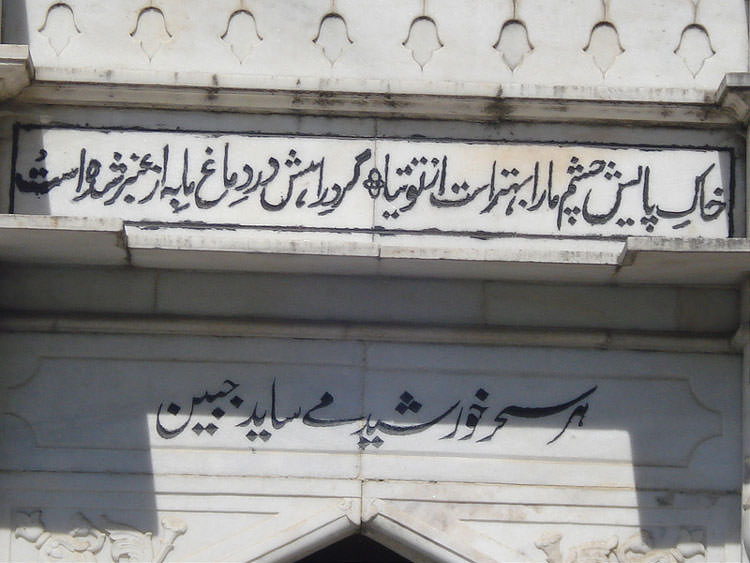 خاکِ پایش چشم ما را بہتر است از توتیا گردِ راہش در دماغِ ما بہ از عنبر شدہ است
ہر سحر خورشید مے ساید جبین